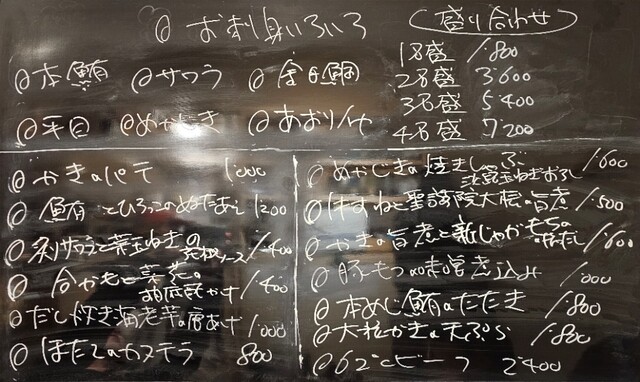 ◎ お刺身いろいろ
盛り合わせ
1名盛 1.800
2名盛 3.600
3名盛 5.400
4名盛 7.200
◎本鮪 ◎サワラ ◎金目鯛
◎平目 ◎めかじき ◎あおりいか
◎ かきのパテ 1.000
◎ 鮪とひろっこのぬたあえ 1200
◎炙りサワラと葉玉ねぎの 1.400
◎ 合かもと菜花の 1.400
◎だし炊き海老芋の唐あげ 1.000
◎ ほたてのカステラ 800
◎ めかじきの焼きしゃぶ 1.600
淡路玉ねぎおろし
と聖護院大根の旨煮 1.500
◎ かきの旨煮と新じゃがもちの 1.600
◎ 豚もつの味噌煮込み 1.000
◎ 本めじ鮪のたたき 1.800
◎ 大粒かきの天ぷら 1.800
◎ 62℃ビーフ 2.400